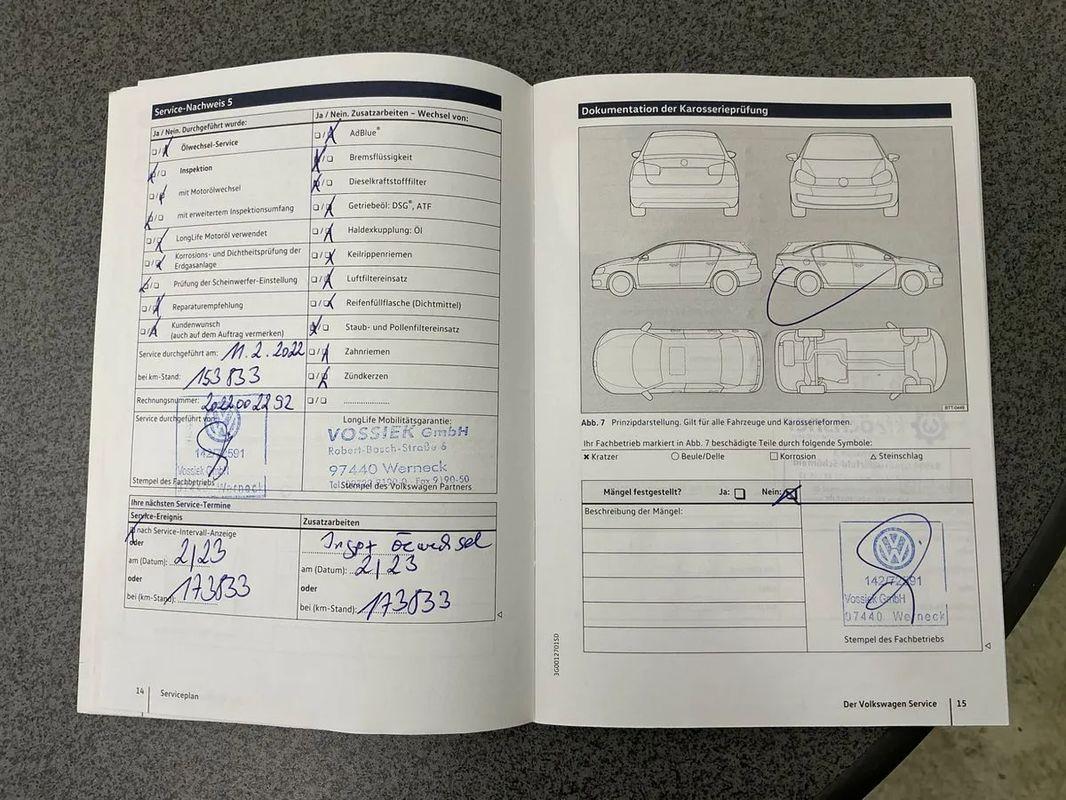 Service-Nachweis 5
Ja / Nein. Durchgeführt wurde:
Ölwechsel-Service
Inspektion
mit Motorölwechsel
mit erweitertem Inspektionsumfang
LongLife Motoröl verwendet
Korrosions- und Dichtheitsprüfung der
Erdgasanlage
Prüfung der Scheinwerfer-Einstellung
Reparaturempfehlung
Kundenwunsch
(auch auf dem Auftrag vermerken)
Service durchgeführt am: 11.2.2022
bei km-Stand: 153833
Rechnungsnummer: 2022002292
Service durchgeführt von:
142/72591
Vossiek GmbH
97440 Werneck
Stempel des Fachbetriebs
Ja / Nein. Zusatzarbeiten – Wechsel von:
AdBlue®
Bremsflüssigkeit
Dieselkraftstofffilter
Getriebeöl: DSG®, ATF
Haldexkupplung: Öl
Keilrippenriemen
Luftfiltereinsatz
Reifenfüllflasche (Dichtmittel)
Staub- und Pollenfiltereinsatz
Zahnriemen
Zündkerzen
LongLife Mobilitätsgarantie:
VOSSIEK GmbH
Robert-Bosch-Straße 6
97440 Werneck
Stempel des Volkswagen Partners
Ihre nächsten Service-Termine
Service-Ereignis
nach Service-Intervall-Anzeige
oder
am (Datum): 2/23
oder
bei (km-Stand): 173833
Zusatzarbeiten
am (Datum): 2/23
oder
bei (km-Stand): 173833
14 Serviceplan
Dokumentation der Karosserieprüfung
BTT-0449
Abb. 7 Prinzipdarstellung. Gilt für alle Fahrzeuge und Karosserieformen.
Ihr Fachbetrieb markiert in Abb. 7 beschädigte Teile durch folgende Symbole:
× Kratzer ○ Beule/Delle □ Korrosion △ Steinschlag
Mängel festgestellt? Ja: Nein:
Beschreibung der Mängel:
142/72591
Vossiek GmbH
97440 Werneck
Stempel des Fachbetriebs
3G0012701SD
Der Volkswagen Service 15